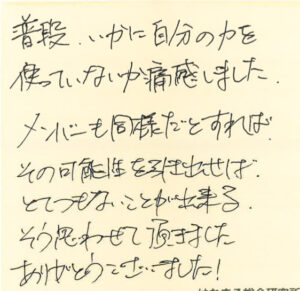 普段、いかに自分の力を
使っていないか痛感しました.
メンバーも同様だとすれば.
その可能性を引き出せば.
とてつもないことが出来る.
そう思わせて頂きました
ありがとうございました!